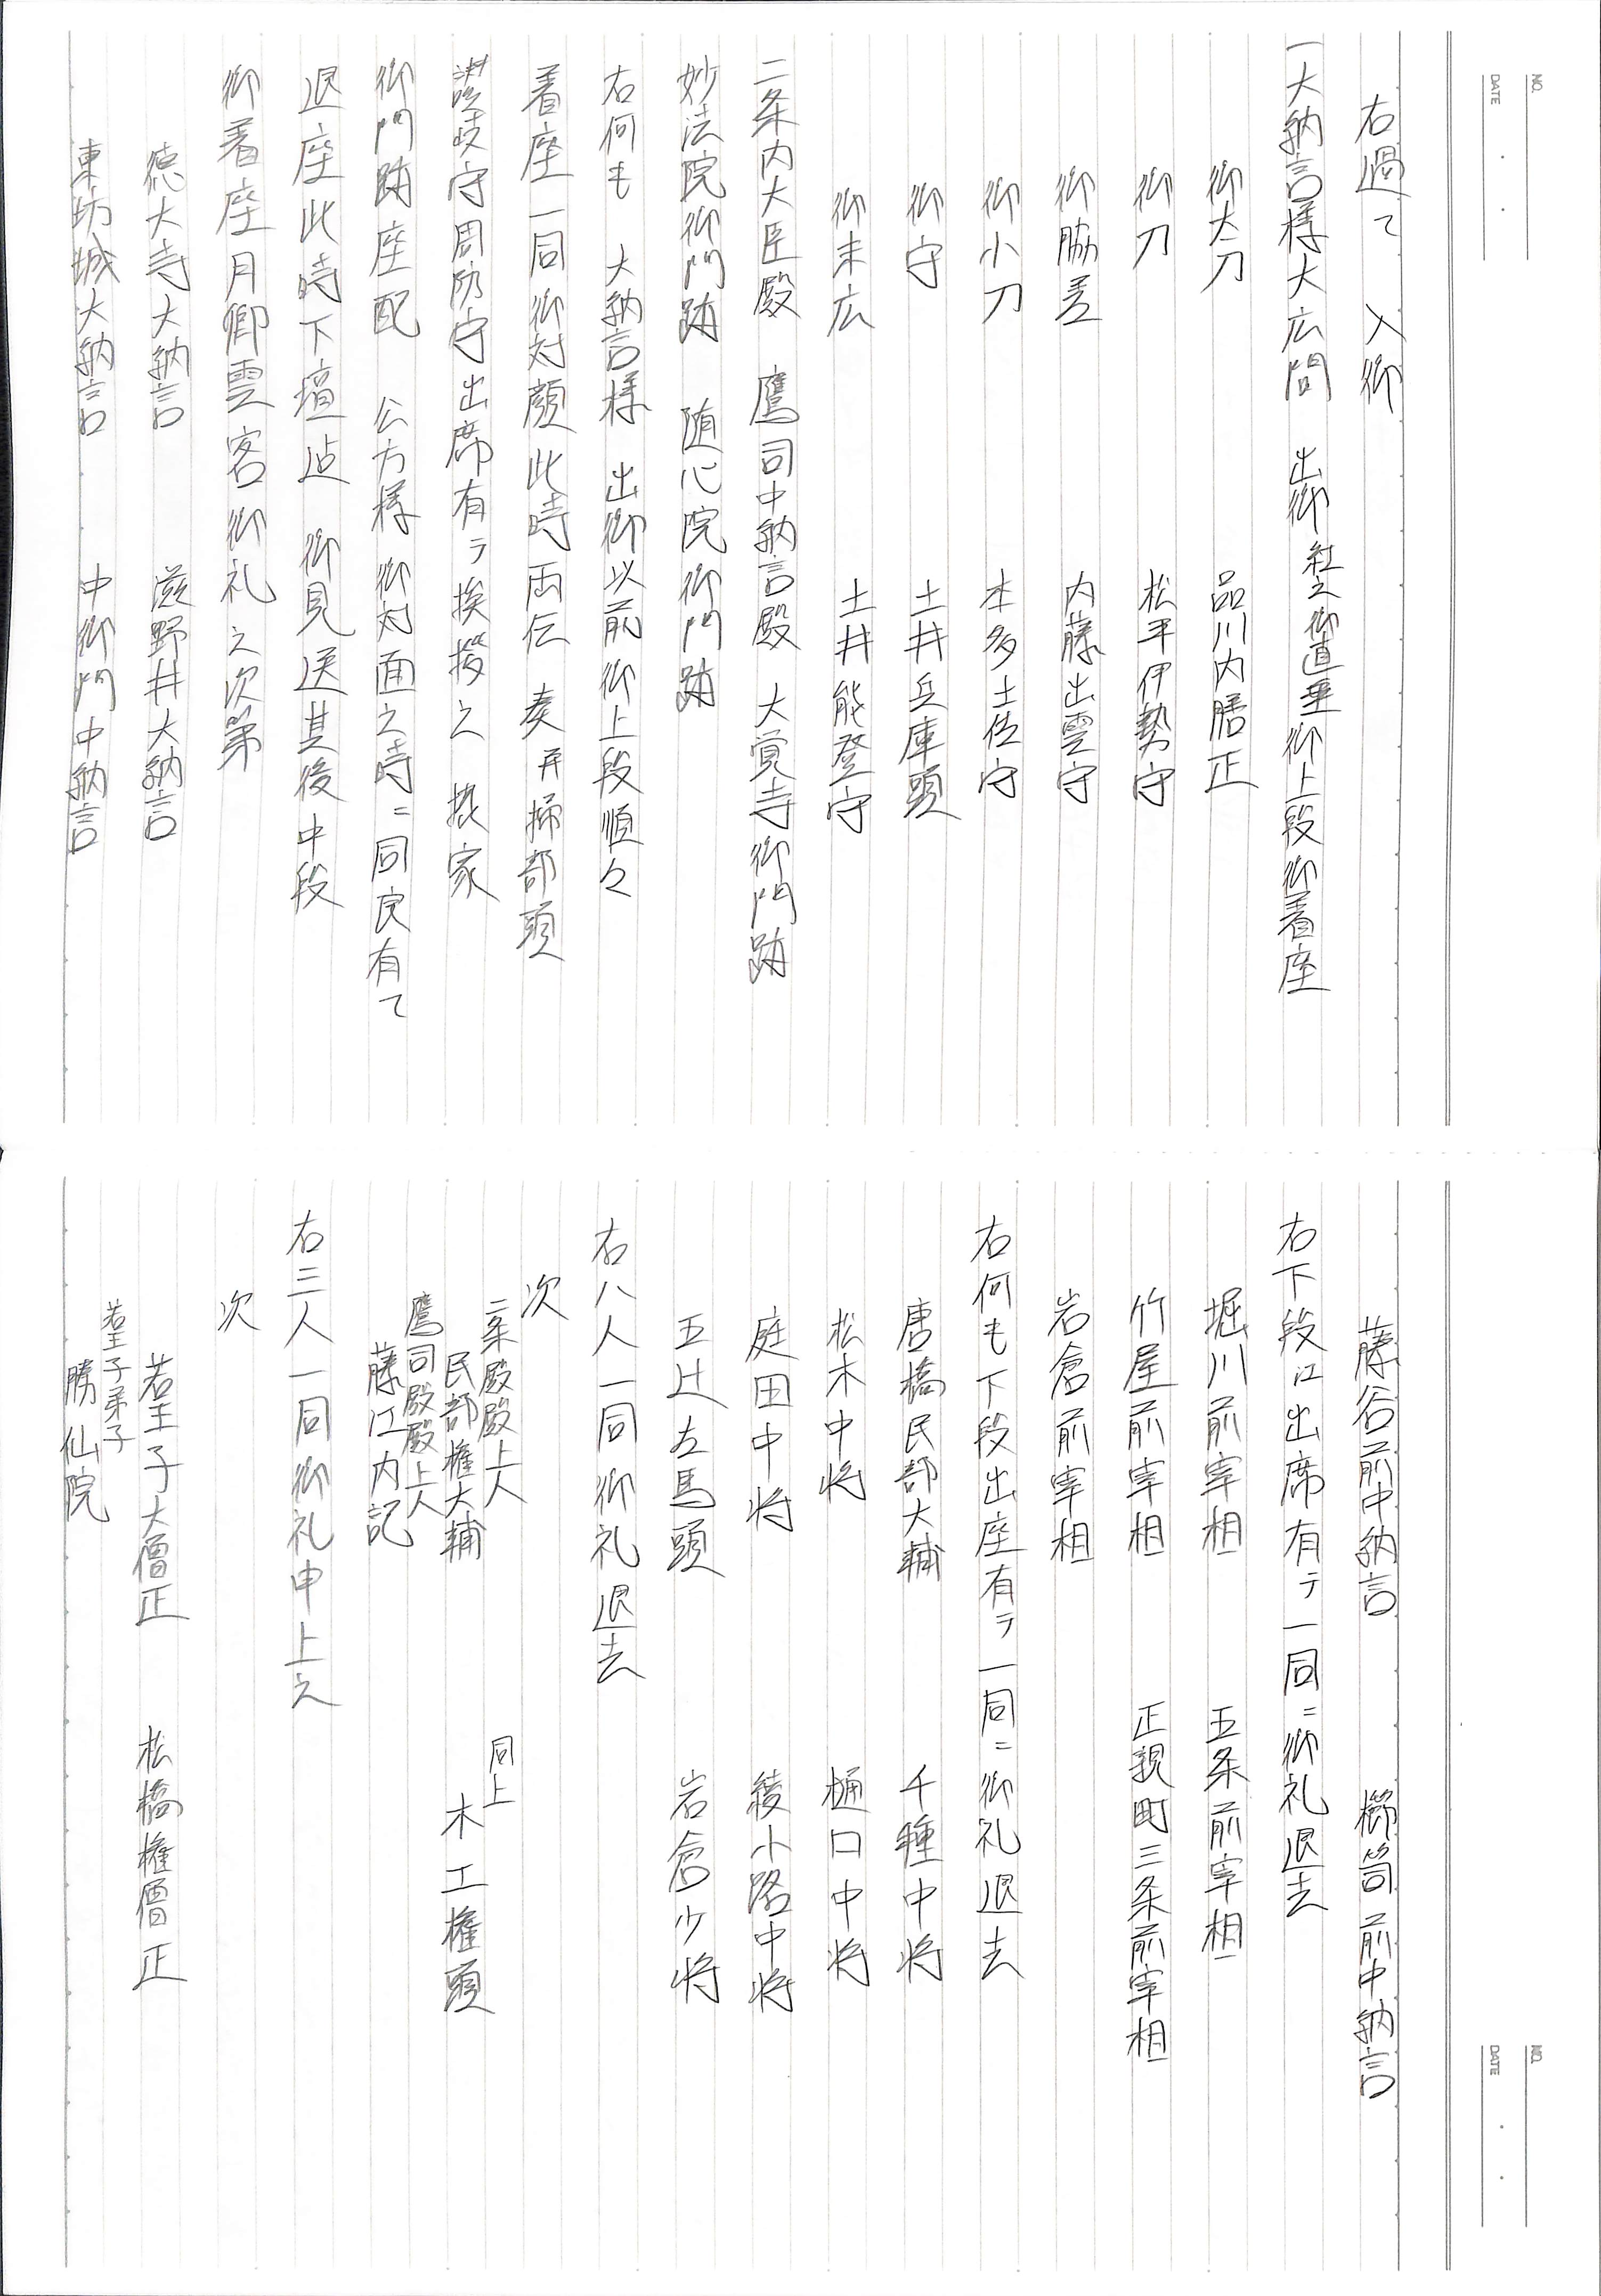 NO.
DATE
右過て　入御
一大納言様大広間　出御 紅之御直垂 御上段御着座
御太刀　品川内膳正
御刀　松平伊勢守
御脇差　内藤出雲守
御小刀　本多土佐守
御守　土井兵庫頭
御末広　土井能登守
二条内大臣殿　鷹司中納言殿　大覚寺御門跡
妙法院御門跡　随心院御門跡
右何も　大納言様　出御以前御上段順々
着座一同御対顔此時両伝　奏并掃部頭
讃岐守周防守出席有テ挨拶之　摂家
御門跡座配　公方様御対面之時ニ同良有て
退座此時下壇迠　御見送其後中段
御着座月卿雲客御礼之次第
徳大寺大納言　滋野井大納言
東坊城大納言　中御門中納言
NO.
DATE
藤谷前中納言　櫛笥前中納言
右下段江出席有テ一同ニ御礼退去
堀川前宰相　五条前宰相
竹屋前宰相　正親町三条前宰相
岩倉前宰相
右何も下段出座有テ一同ニ御礼退去
唐橋民部大輔　千種中将
松木中将　樋口中将
庭田中将　綾小路中将
五辻左馬頭　岩倉少将
右八人一同御礼退去
次
二条殿殿上人　同上
民部権大輔　木工権頭
鷹司殿殿上人
藤江内記
右三人一同御礼申上之
次
若王子大僧正　松橋権僧正
若王子弟子
勝仙院